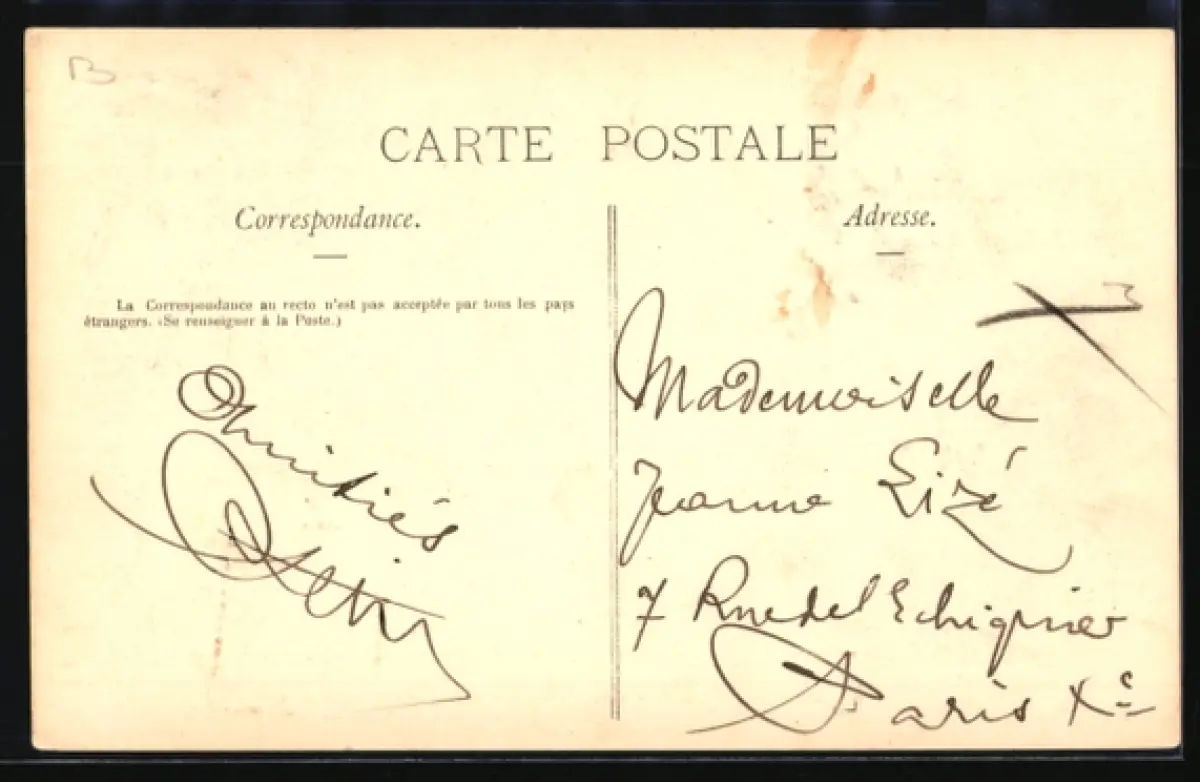 B
CARTE POSTALE
Correspondance.
La Correspondance au recto n'est pas acceptée par tous les pays
étrangers. (Se renseigner à la Poste.)
Amitiés
Adresse.
Mademoiselle
Jeanne Lizé
7 Rue de l'Echiquier
Paris Xe